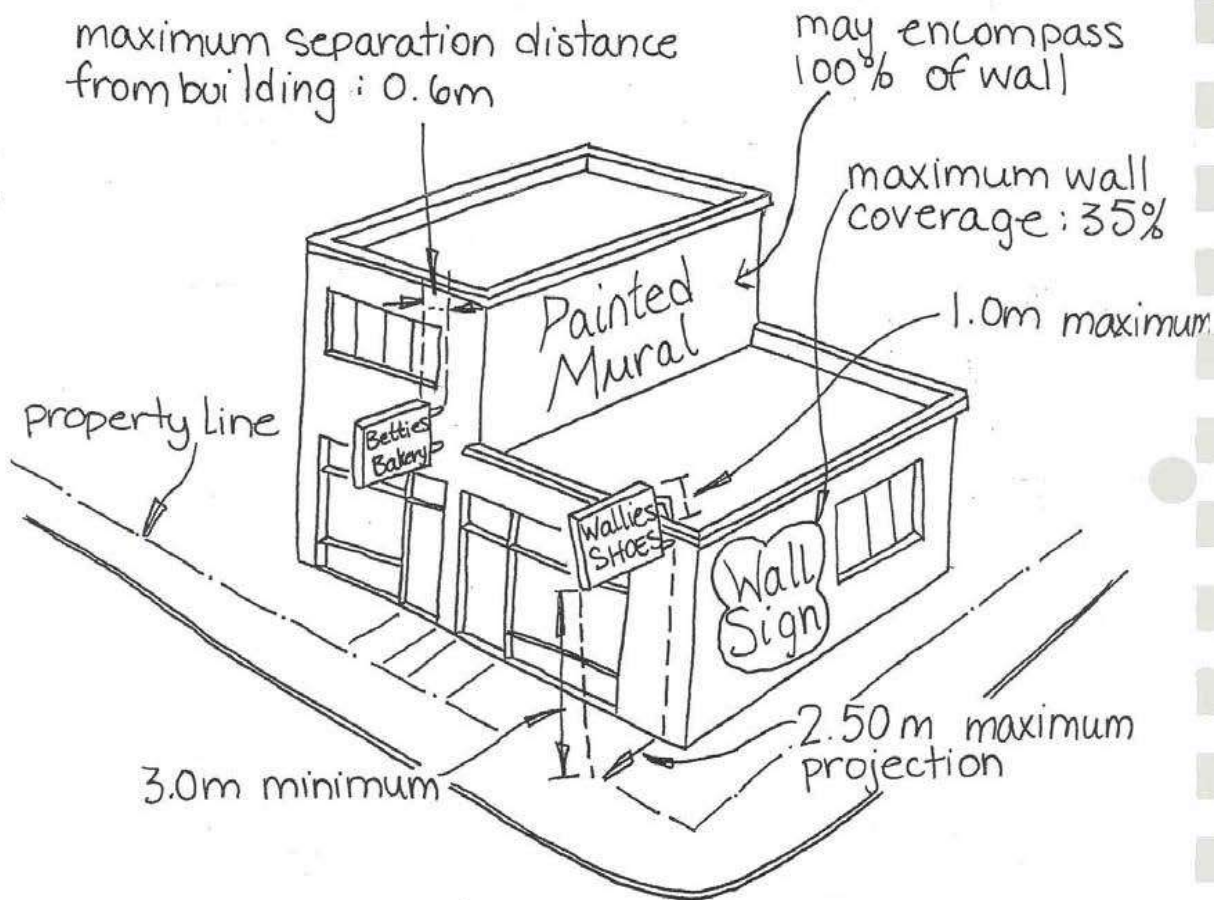 maximum separation distance
from building : 0.6m
may encompass
100% of wall
maximum wall
coverage : 35%
1.0m maximum
Painted
Mural
property line
Betties
Bakery
Wallies
SHOES
Wall
Sign
2.50m maximum
projection
3.0m minimum